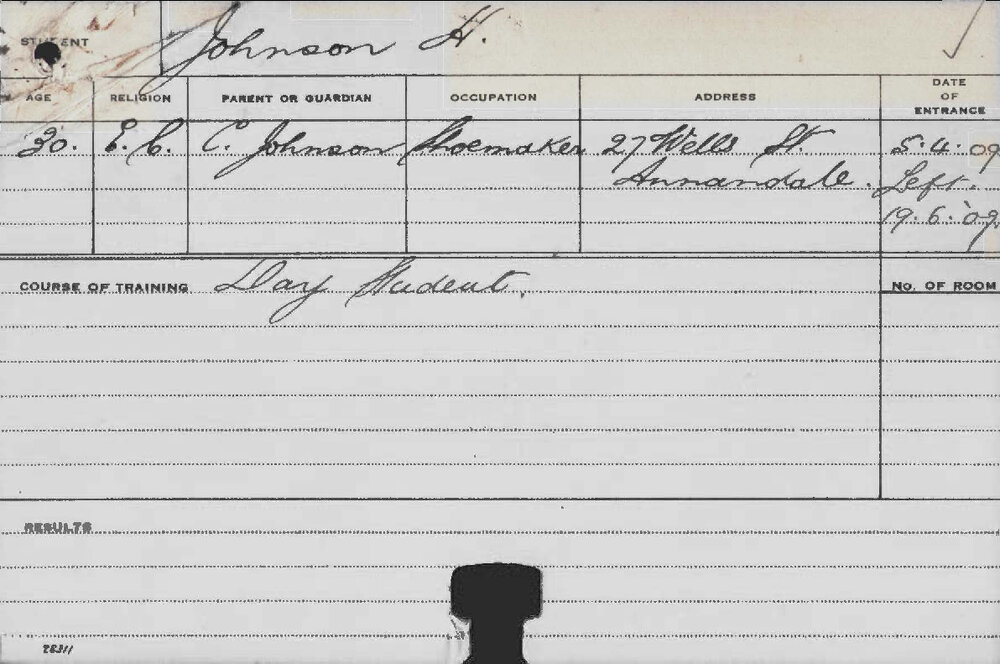 STUDENT Johnson H.
AGE RELIGION PARENT OR GUARDIAN OCCUPATION ADDRESS DATE OF ENTRANCE
30. E.C. C. Johnson Shoemaker 27 Wells St. 5.4.09
Annandale. Left.
19.6.09.
COURSE OF TRAINING Day Student. No. OF ROOM
RESULTS